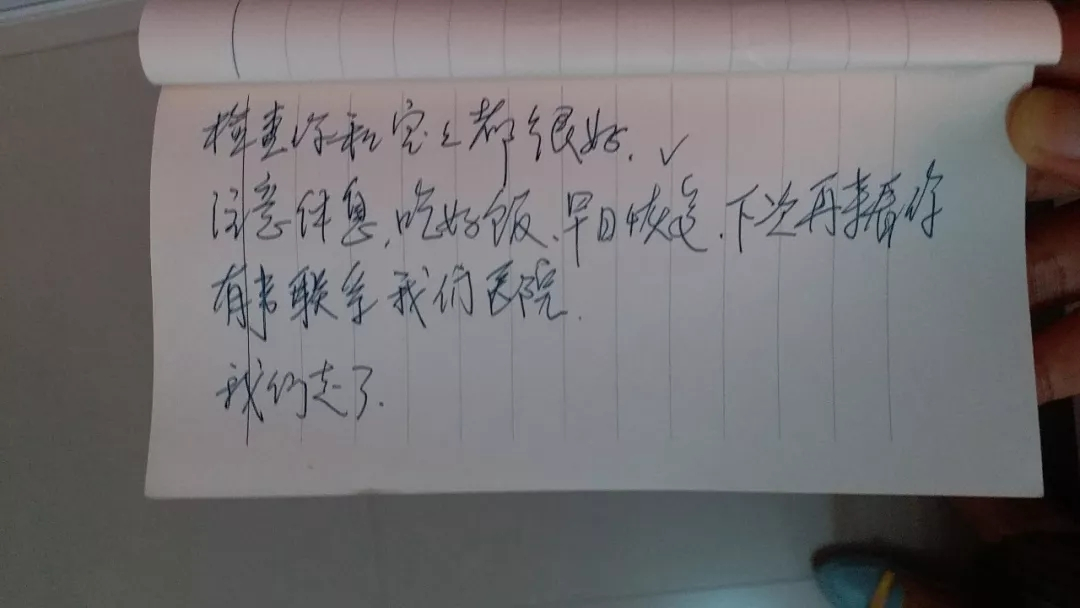 检查你和宝宝都很好.✓
注意休息,吃好饭、早日恢复.下次再来看你
有事联系我们医院.
我们走了.